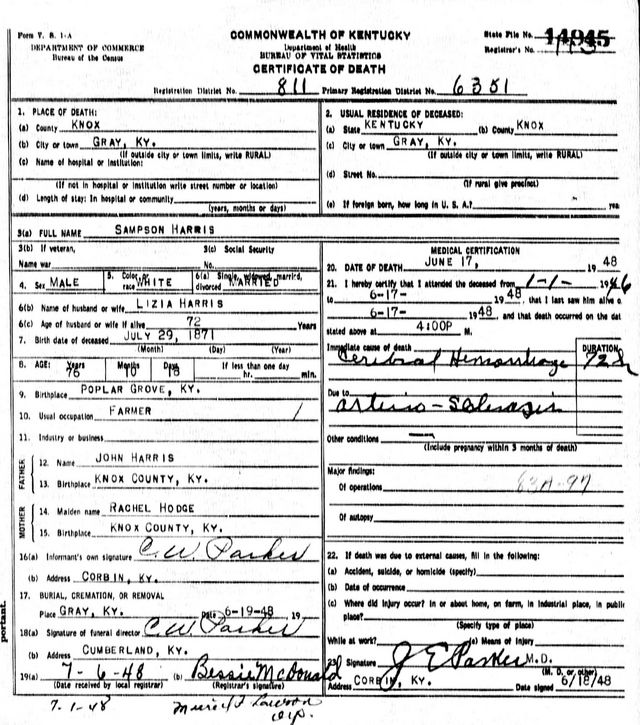 Form V. S. 1-A
DEPARTMENT OF COMMERCE
Bureau of the Census
COMMONWEALTH OF KENTUCKY
Department of Health
BUREAU OF VITAL STATISTICS
CERTIFICATE OF DEATH
State File No. 14945
Registrar's No.
Registration District No. 811 Primary Registration District No. 6351
1. PLACE OF DEATH:
(a) County KNOX
(b) City or town GRAY, KY.
(If outside city or town limits, write RURAL)
(c) Name of hospital or institution:
(If not in hospital or institution write street number or location)
(d) Length of stay: In hospital or community
(years, months or days)
2. USUAL RESIDENCE OF DECEASED:
(a) State KENTUCKY (b) County KNOX
(c) City or town GRAY, KY.
(If outside city or town limits, write RURAL)
(d) Street No.
(If rural give precinct)
(e) If foreign born, how long in U. S. A.?
3(a) FULL NAME SAMPSON HARRIS
3(b) If veteran, Name war
3(c) Social Security No.
4. Sex MALE 5. Color or race WHITE 6(a) Single, widowed, married, divorced MARRIED
6(b) Name of husband or wife LIZIA HARRIS
6(c) Age of husband or wife if alive 72 Years
7. Birth date of deceased JULY 29, 1871
(Month) (Day) (Year)
8. AGE: Years 76 Months 10 Days 18 If less than one day hr. min.
9. Birthplace POPLAR GROVE, KY.
10. Usual occupation FARMER
11. Industry or business
FATHER
12. Name JOHN HARRIS
13. Birthplace KNOX COUNTY, KY.
MOTHER
14. Maiden name RACHEL HODGE
15. Birthplace KNOX COUNTY, KY.
16(a) Informant's own signature C. W. Parker
(b) Address CORBIN, KY.
17. BURIAL, CREMATION, OR REMOVAL
Place GRAY, KY. Date 6-19-48 19
18(a) Signature of funeral director C. W. Parker
(b) Address CUMBERLAND, KY.
19(a) 7-6-48 (b) Bessie McDonald
(Date received by local registrar) (Registrar's signature)
7-1-48
MEDICAL CERTIFICATION
20. DATE OF DEATH JUNE 17, 1948
21. I hereby certify that I attended the deceased from 1-1- 1946
to 6-17- 1948, that I last saw him alive o
6-17- 1948, and that death occurred on the dat
stated above at 4:00P M.
Immediate cause of death
DURATION
Cerebral Hemorrhage 72 h
Due to
Arterio-Sclerosis
Other conditions
(Include pregnancy within 3 months of death)
Major findings:
Of operations 83A-97
Of autopsy
22. If death was due to external causes, fill in the following:
(a) Accident, suicide, or homicide (specify)
(b) Date of occurrence
(c) Where did injury occur? In or about home, on farm, in industrial place, in public
place?
(Specify type of place)
While at work? (e) Means of injury
23. Signature J E Parker M.D.
(M. D. or other)
Address CORBIN, KY. Date signed 6/18/48
portant.